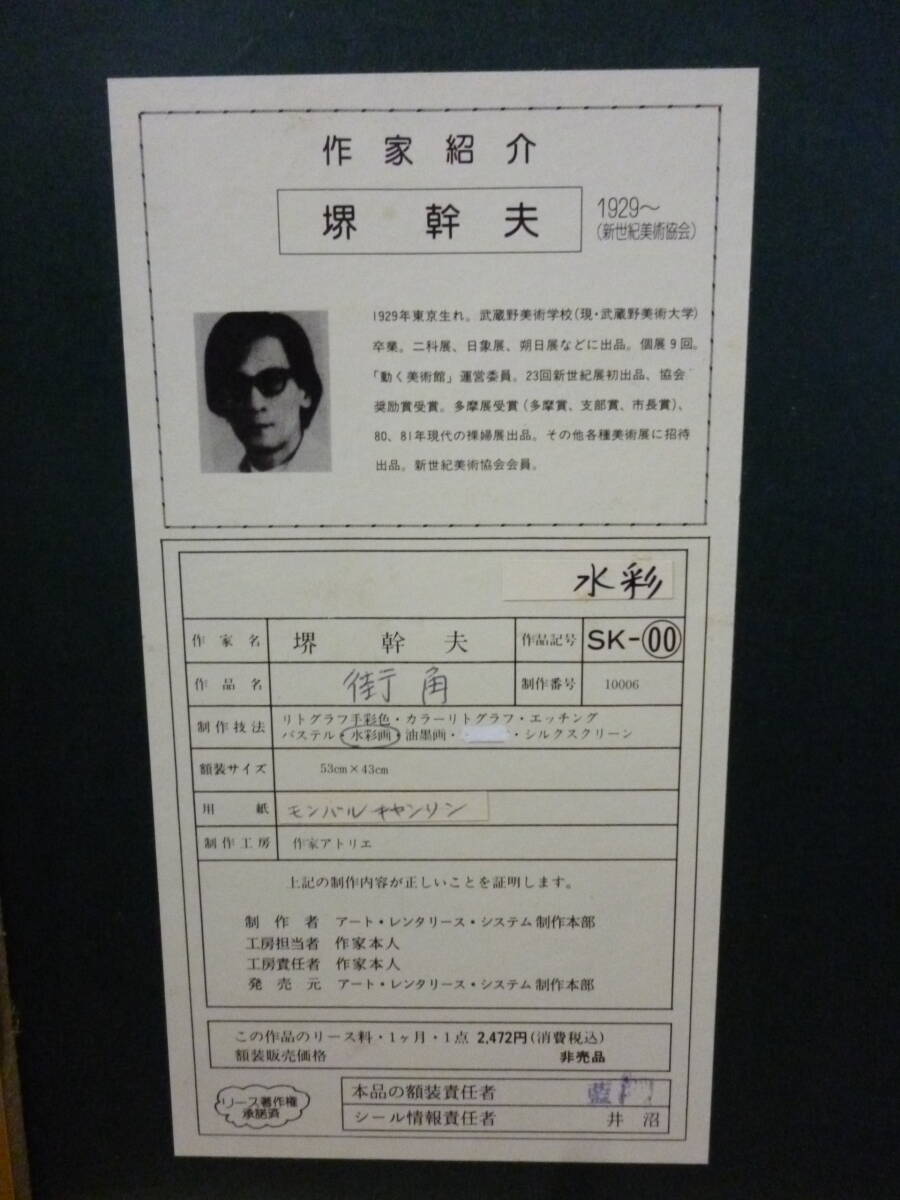 作家紹介
堺 幹夫
1929〜
(新世紀美術協会)
1929年東京生れ。武蔵野美術学校(現・武蔵野美術大学)
卒業。二科展、日象展、朔日展などに出品。個展9回。
「動く美術館」運営委員。23回新世紀展初出品、協会
奨励賞受賞。多摩展受賞(多摩賞、支部賞、市長賞)、
80、81年現代の裸婦展出品。その他各種美術展に招待
出品。新世紀美術協会会員。
水彩
作家名 堺 幹夫 作品記号 SK-00
作品名 街角 制作番号 10006
制作技法 リトグラフ手彩色・カラーリトグラフ・エッチング
パステル・水彩画・油墨画・ ・シルクスクリーン
額装サイズ 53cm×43cm
用紙 モンバルキャンソン
制作工房 作家アトリエ
上記の制作内容が正しいことを証明します。
制作者 アート・レンタリース・システム制作本部
工房担当者 作家本人
工房責任者 作家本人
発売元 アート・レンタリース・システム制作本部
この作品のリース料・1ヶ月・1点 2,472円(消費税込)
額装販売価格 非売品
リース著作権
承諾済
本品の額装責任者
シール情報責任者 井沼